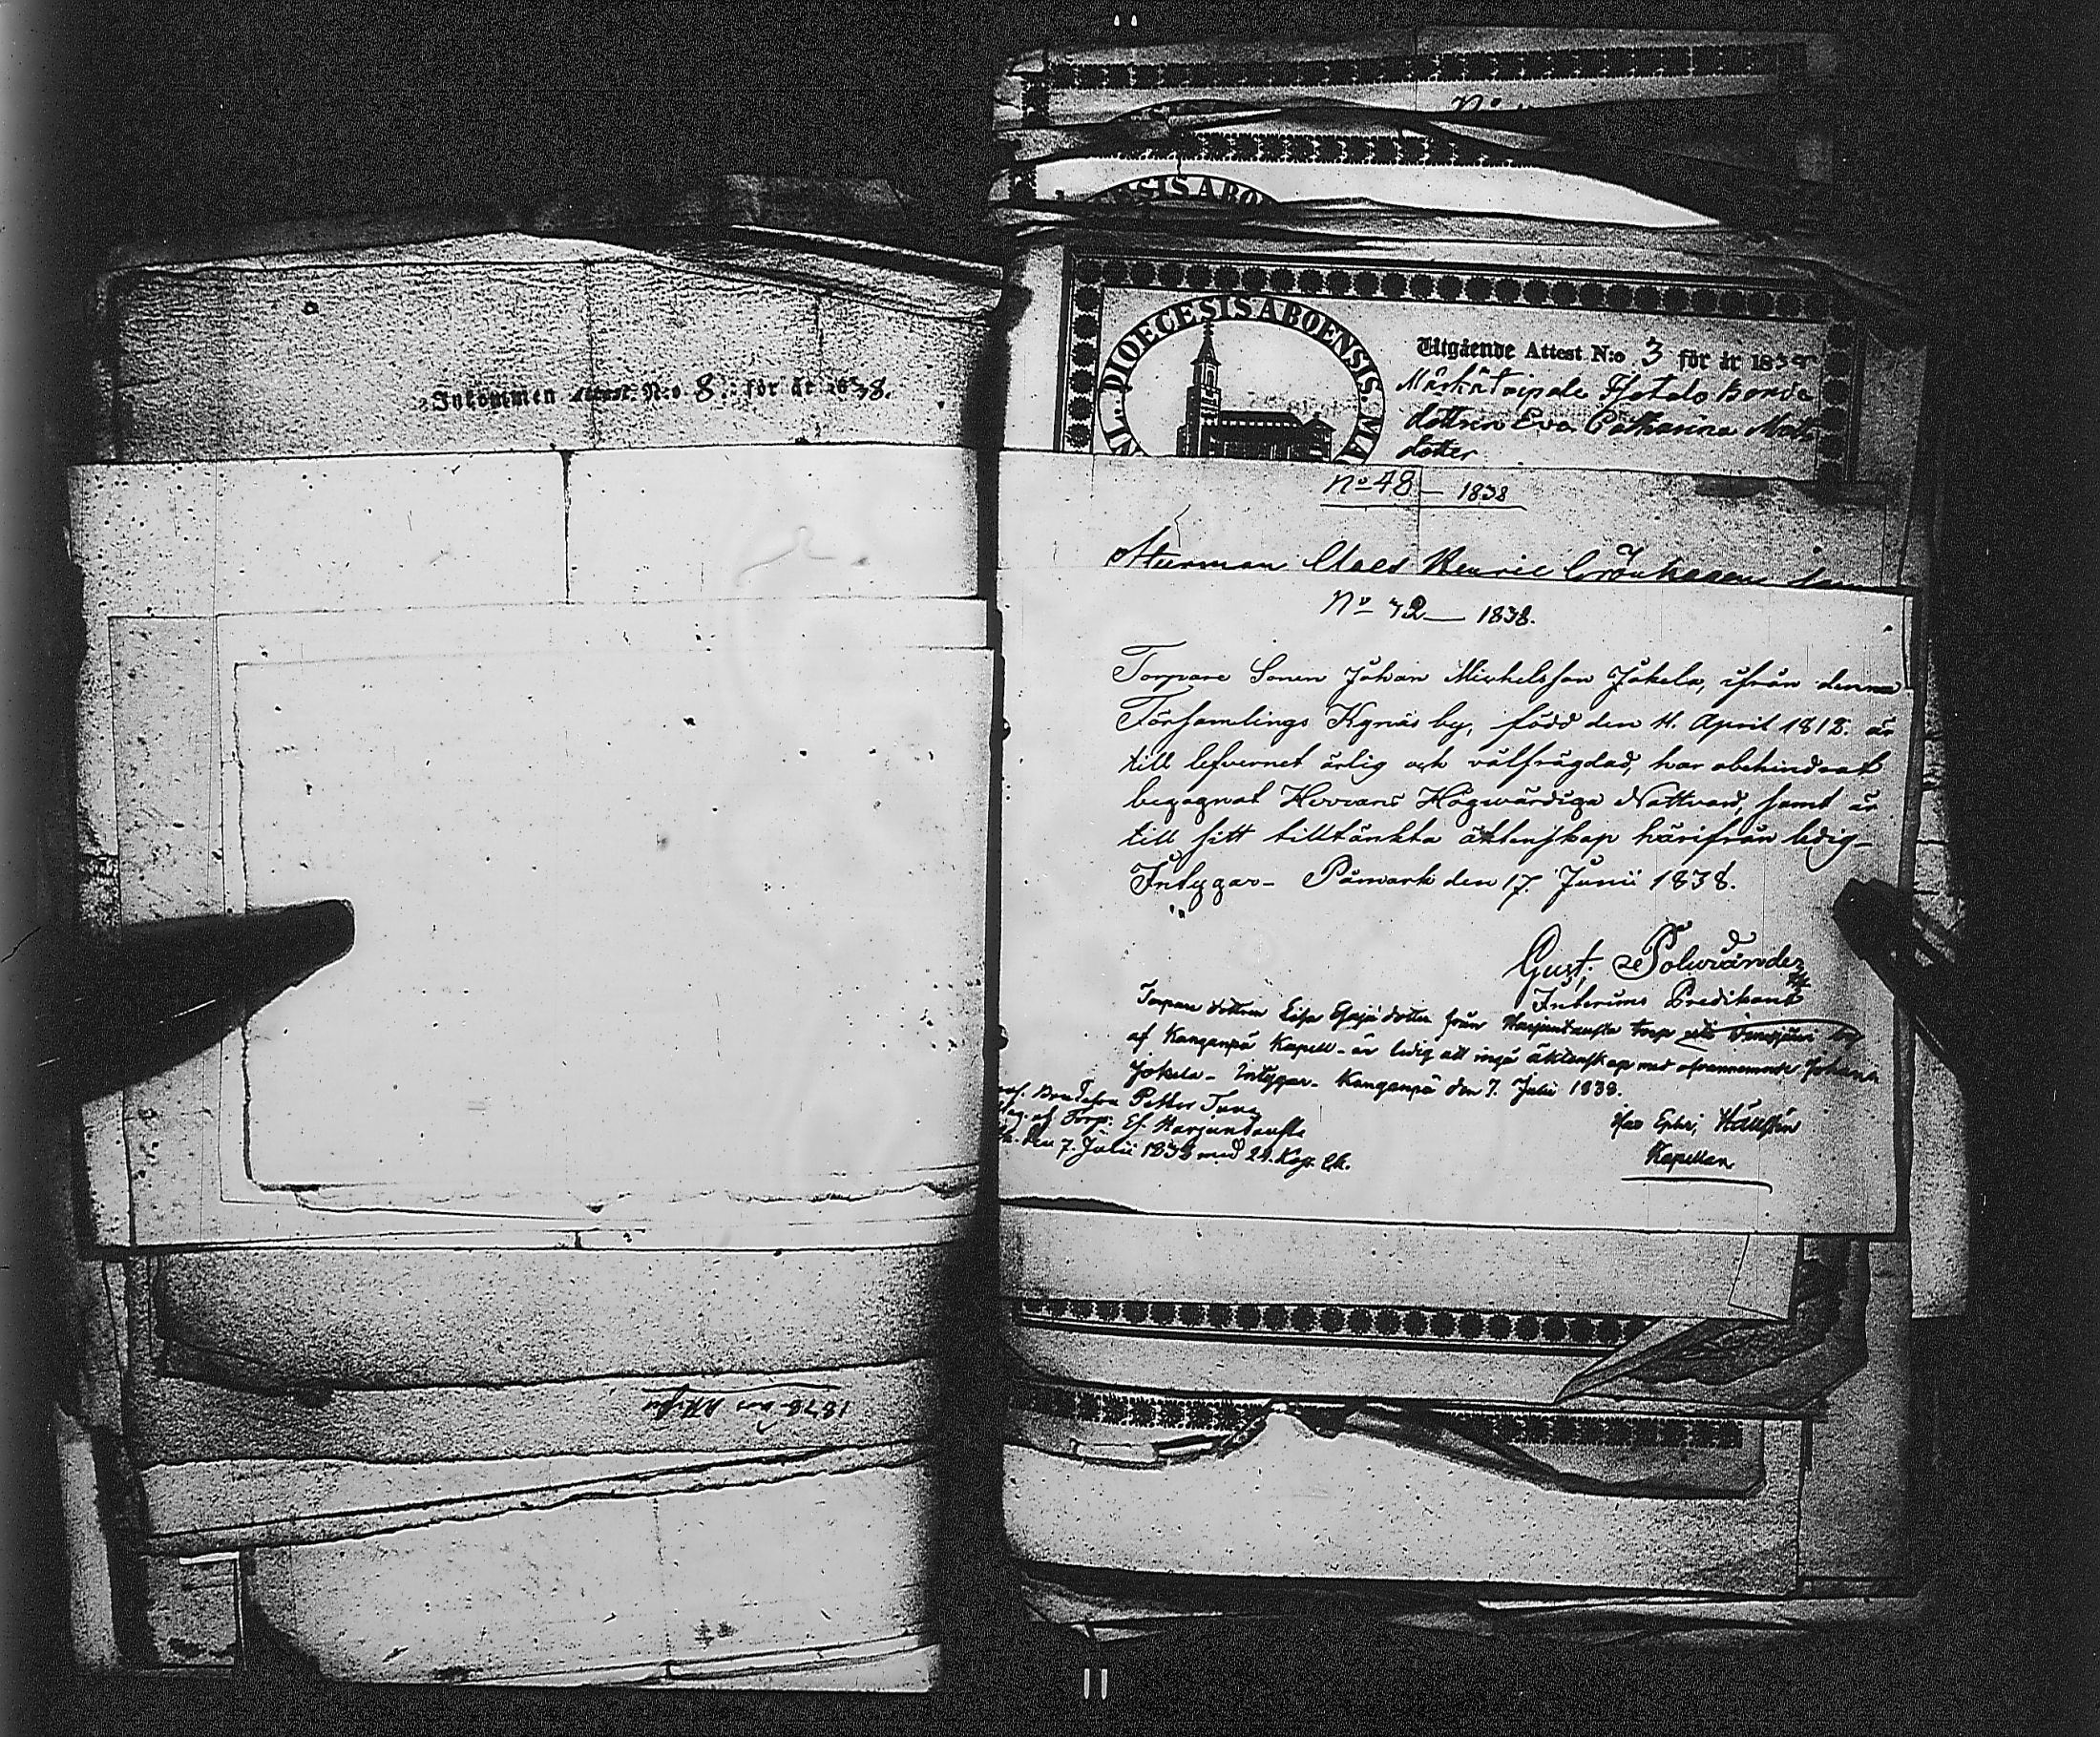 Inkommen Attest N:o 8. för år 1838.
1878 års
DIOECESIS ABO
DIOECESIS ABOENSIS. MA
Utgående Attest N:o 3 för år 183
dottren Eva Catharina Matts
dotter
No 48 — 1838
Sturman Henric
No 42 — 1838.
Torpare Sonen Johan Michelsson Jokela, ifrån denna
Församlings Kynäs by, född den 4. April 1812. är
till lefvernet ärlig och välfrägdad, har obehindrat
begagnat Herrans Högwärdiga Nattvard, samt är
till sitt tilltänkta äktenskap härifrån ledig_
Intygar_ Påmark den 17. Junii 1838.
Gust. Polwiander
Interims Predikant
Torpare dottren Lisa Esajæ dotter från Harjundausta torp
af Kanganpä Kapell_ är ledig att ingå äktenskap med ofvannemnde Johan
Jokela_ Intygar_ Kanganpä den 7. Julii 1838.
Petter
af Torp. Harjundausta
den 7. Julii 1838 med 24. Kop.
Kapellan